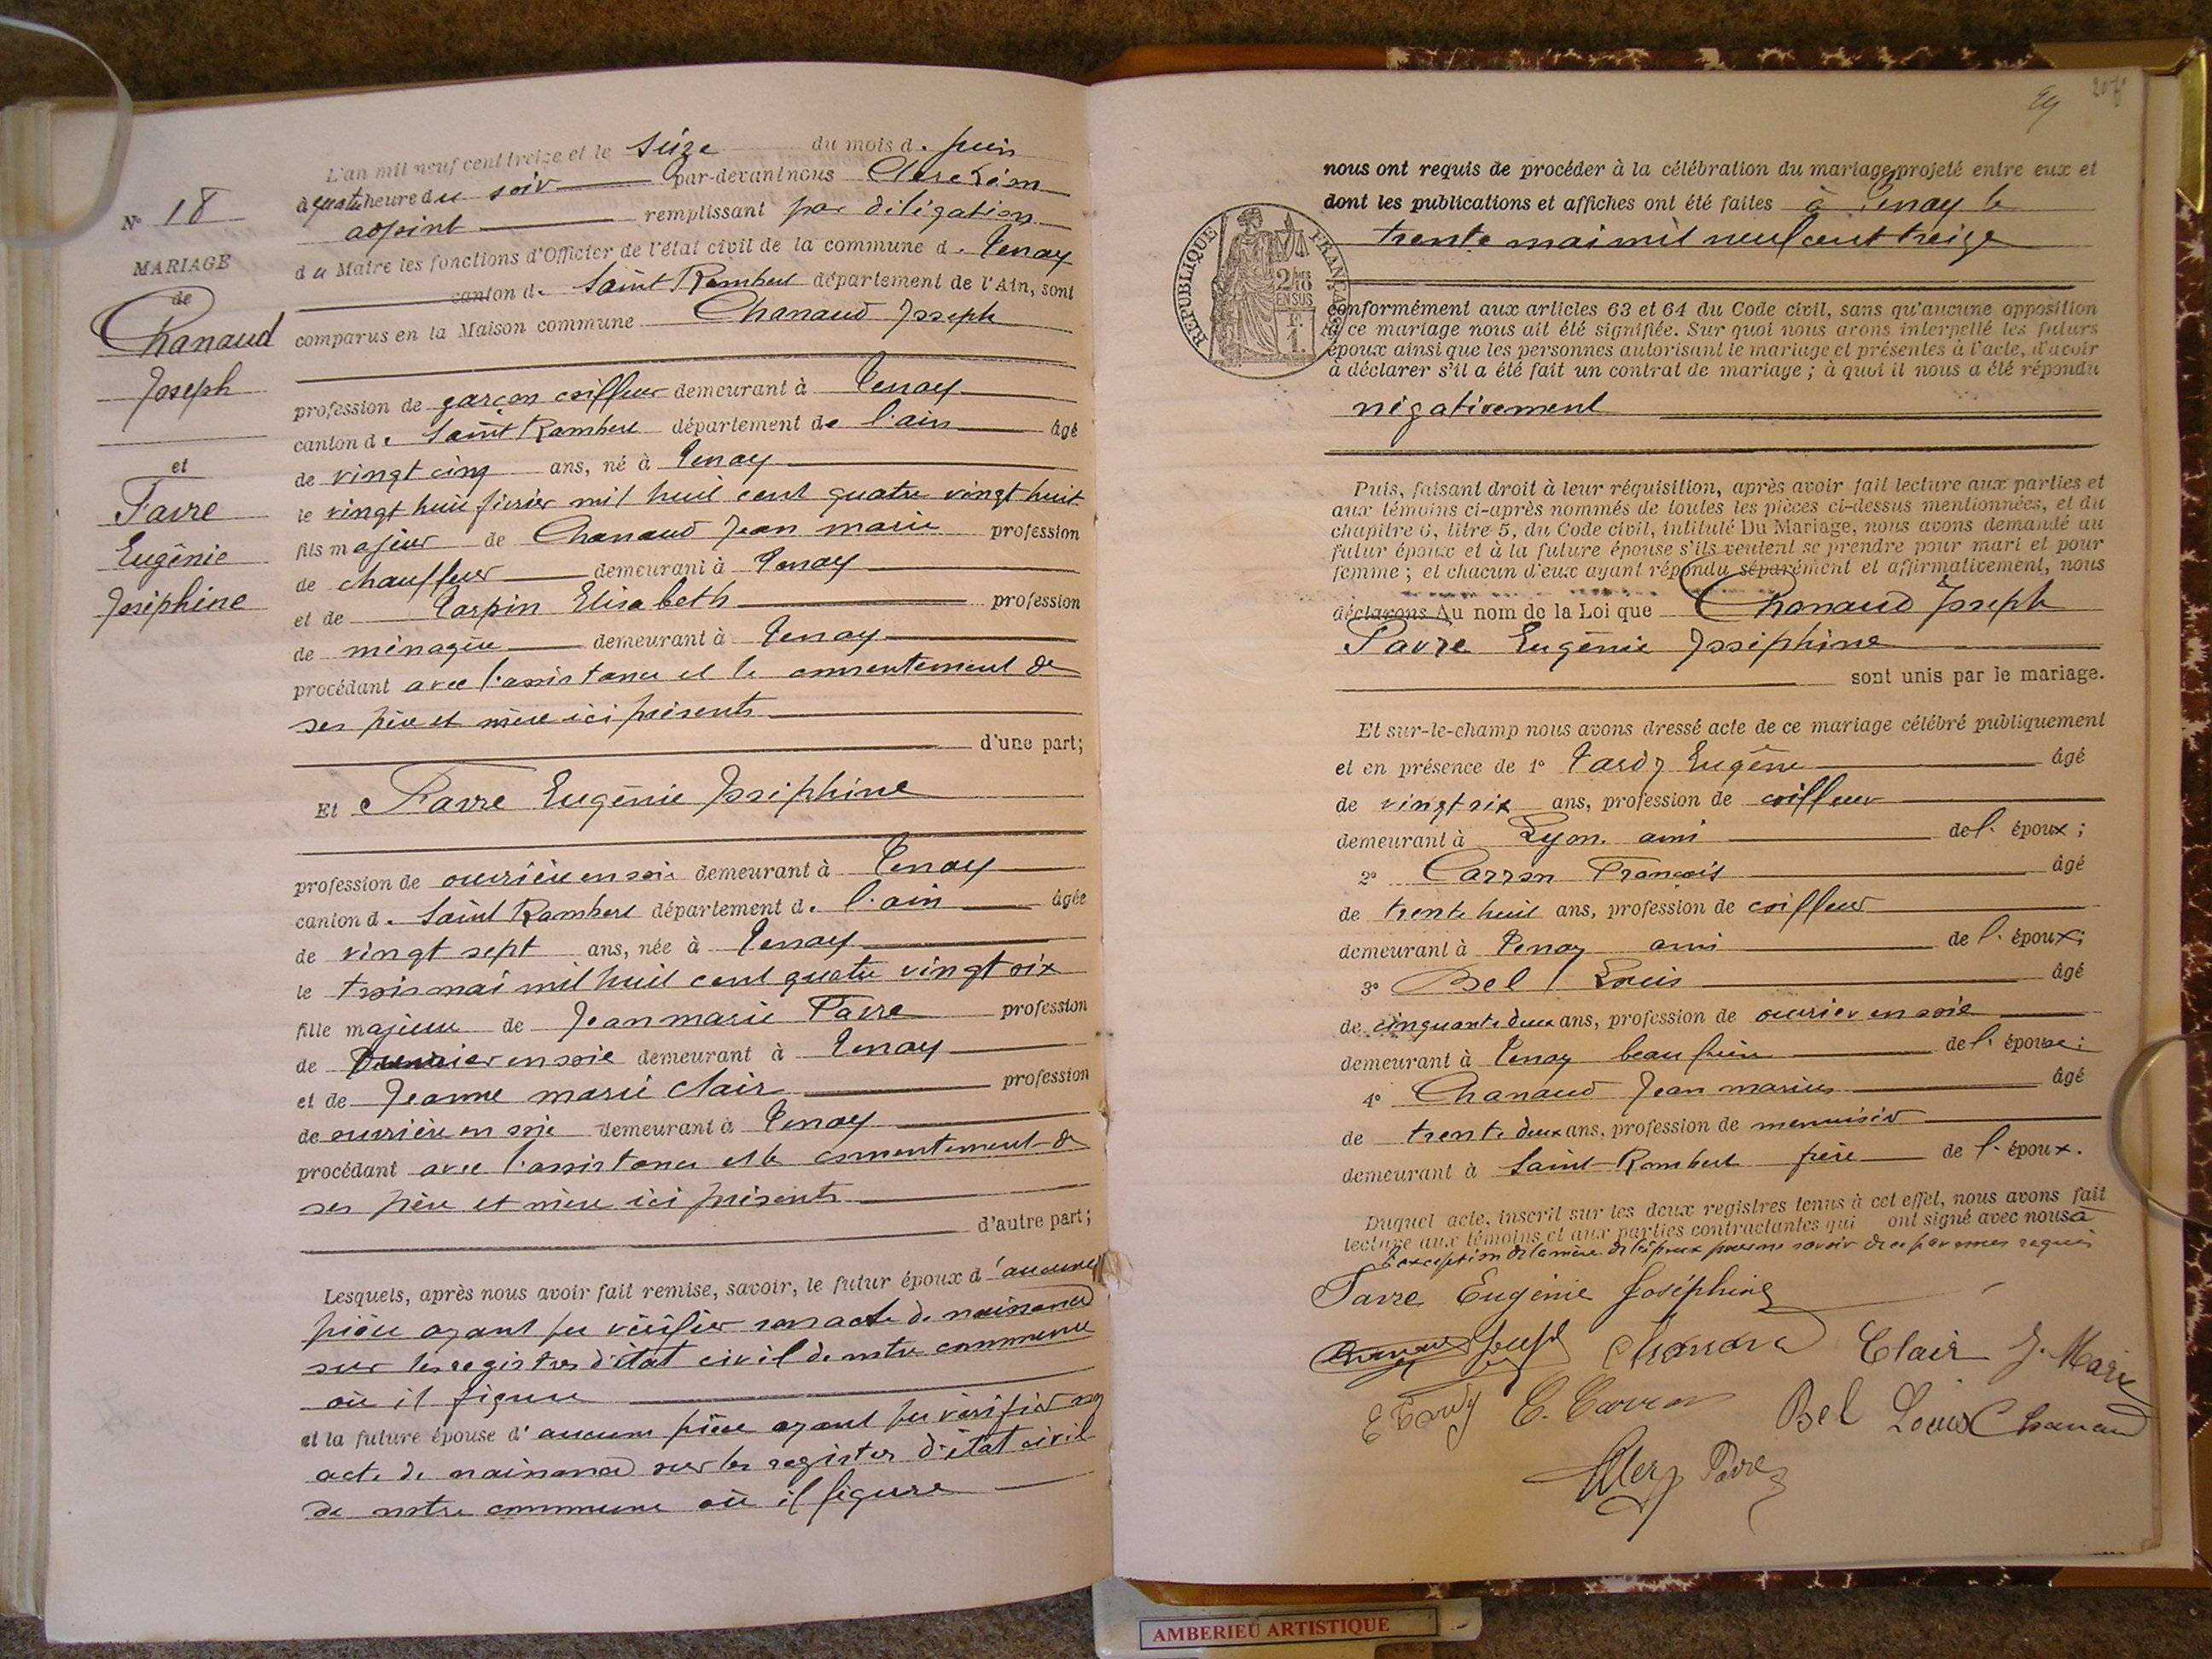 N° 18
MARIAGE
de
Chanaud
Joseph
et
Favre
Eugènie
Joséphine
L'an mil neuf cent treize et le seize du mois d. juin
à quatre heure du soir par-devant nous
adjoint remplissant par délégation
du Maire les fonctions d'Officier de l'état civil de la commune d. Tenay
canton d. Saint Rambert département de l'Ain, sont
comparus en la Maison commune Chanaud Joseph
profession de garçon coiffeur demeurant à Tenay
canton d. Saint Rambert département de l'ain âgé
de vingt cinq ans, né à Tenay
le vingt huit février mil huit cent quatre vingt huit
fils majeur de Chanaud Jean marie profession
de chauffeur demeurant à Tenay
et de Carpin Elisabeth profession
de ménagère demeurant à Tenay
procédant avec l'assistance et le consentement de
ses père et mère ici présents
d'une part;
Et Favre Eugènie Joséphine
profession de ouvrière en soie demeurant à Tenay
canton d. Saint Rambert département d. l'ain âgée
de vingt sept ans, née à Tenay
le trois mai mil huit cent quatre vingt six
fille majeure de Jean marie Favre profession
de ouvrier en soie demeurant à Tenay
et de Jeanne marie Clair profession
de ouvrière en soie demeurant à Tenay
procédant avec l'assistance et le consentement de
ses père et mère ici présents
d'autre part;
Lesquels, après nous avoir fait remise, savoir, le futur époux d'aucune
pièce ayant pu vérifier son acte de naissance
sur les registres d'état civil de notre commune
où il figure
et la future épouse d'aucune pièce ayant pu vérifier son
acte de naissance sur les registres d'état civil
de notre commune où il figure
nous ont requis de procéder à la célébration du mariage projeté entre eux et
dont les publications et affiches ont été faites à Tenay le
trente mai mil neuf cent treize
RÉPUBLIQUE FRANÇAISE
2/10 EN SUS
1 F.
conformément aux articles 63 et 64 du Code civil, sans qu'aucune opposition
à ce mariage nous ait été signifiée. Sur quoi nous avons interpellé les futurs
époux ainsi que les personnes autorisant le mariage et présentes à l'acte, d'avoir
à déclarer s'il a été fait un contrat de mariage ; à quoi il nous a été répondu
négativement
Puis, faisant droit à leur réquisition, après avoir fait lecture aux parties et
aux témoins ci-après nommés de toutes les pièces ci-dessus mentionnées, et du
chapitre 6, titre 5, du Code civil, intitulé Du Mariage, nous avons demandé au
futur époux et à la future épouse s'ils veulent se prendre pour mari et pour
femme ; et chacun d'eux ayant répondu séparément et affirmativement, nous
déclarons Au nom de la Loi que Chanaud Joseph
Favre Eugènie Joséphine
sont unis par le mariage.
Et sur-le-champ nous avons dressé acte de ce mariage célébré publiquement
et en présence de 1° Tardy Eugène âgé
de vingt six ans, profession de coiffeur
demeurant à Lyon. ami de l. époux ;
2° Carron François âgé
de trente huit ans, profession de coiffeur
demeurant à Tenay ami de l. époux;
3° Bel Louis âgé
de cinquante deux ans, profession de ouvrier en soie
demeurant à Tenay beau frère de l. épouse;
4° Chanaud Jean marius âgé
de trente deux ans, profession de menuisier
demeurant à Saint-Rambert frère de l. époux.
Duquel acte, inscrit sur les deux registres tenus à cet effet, nous avons fait
lecture aux témoins et aux parties contractantes qui ont signé avec nous à
l'exception de la mère de l'époux pour ne savoir de ce par nous requis
Favre Eugénie Joséphine
Chanaud Joseph Chanaud Clair J. Marie
E Tardy C. Carron Bel Louis Chanaud
Favre
AMBERIEU ARTISTIQUE